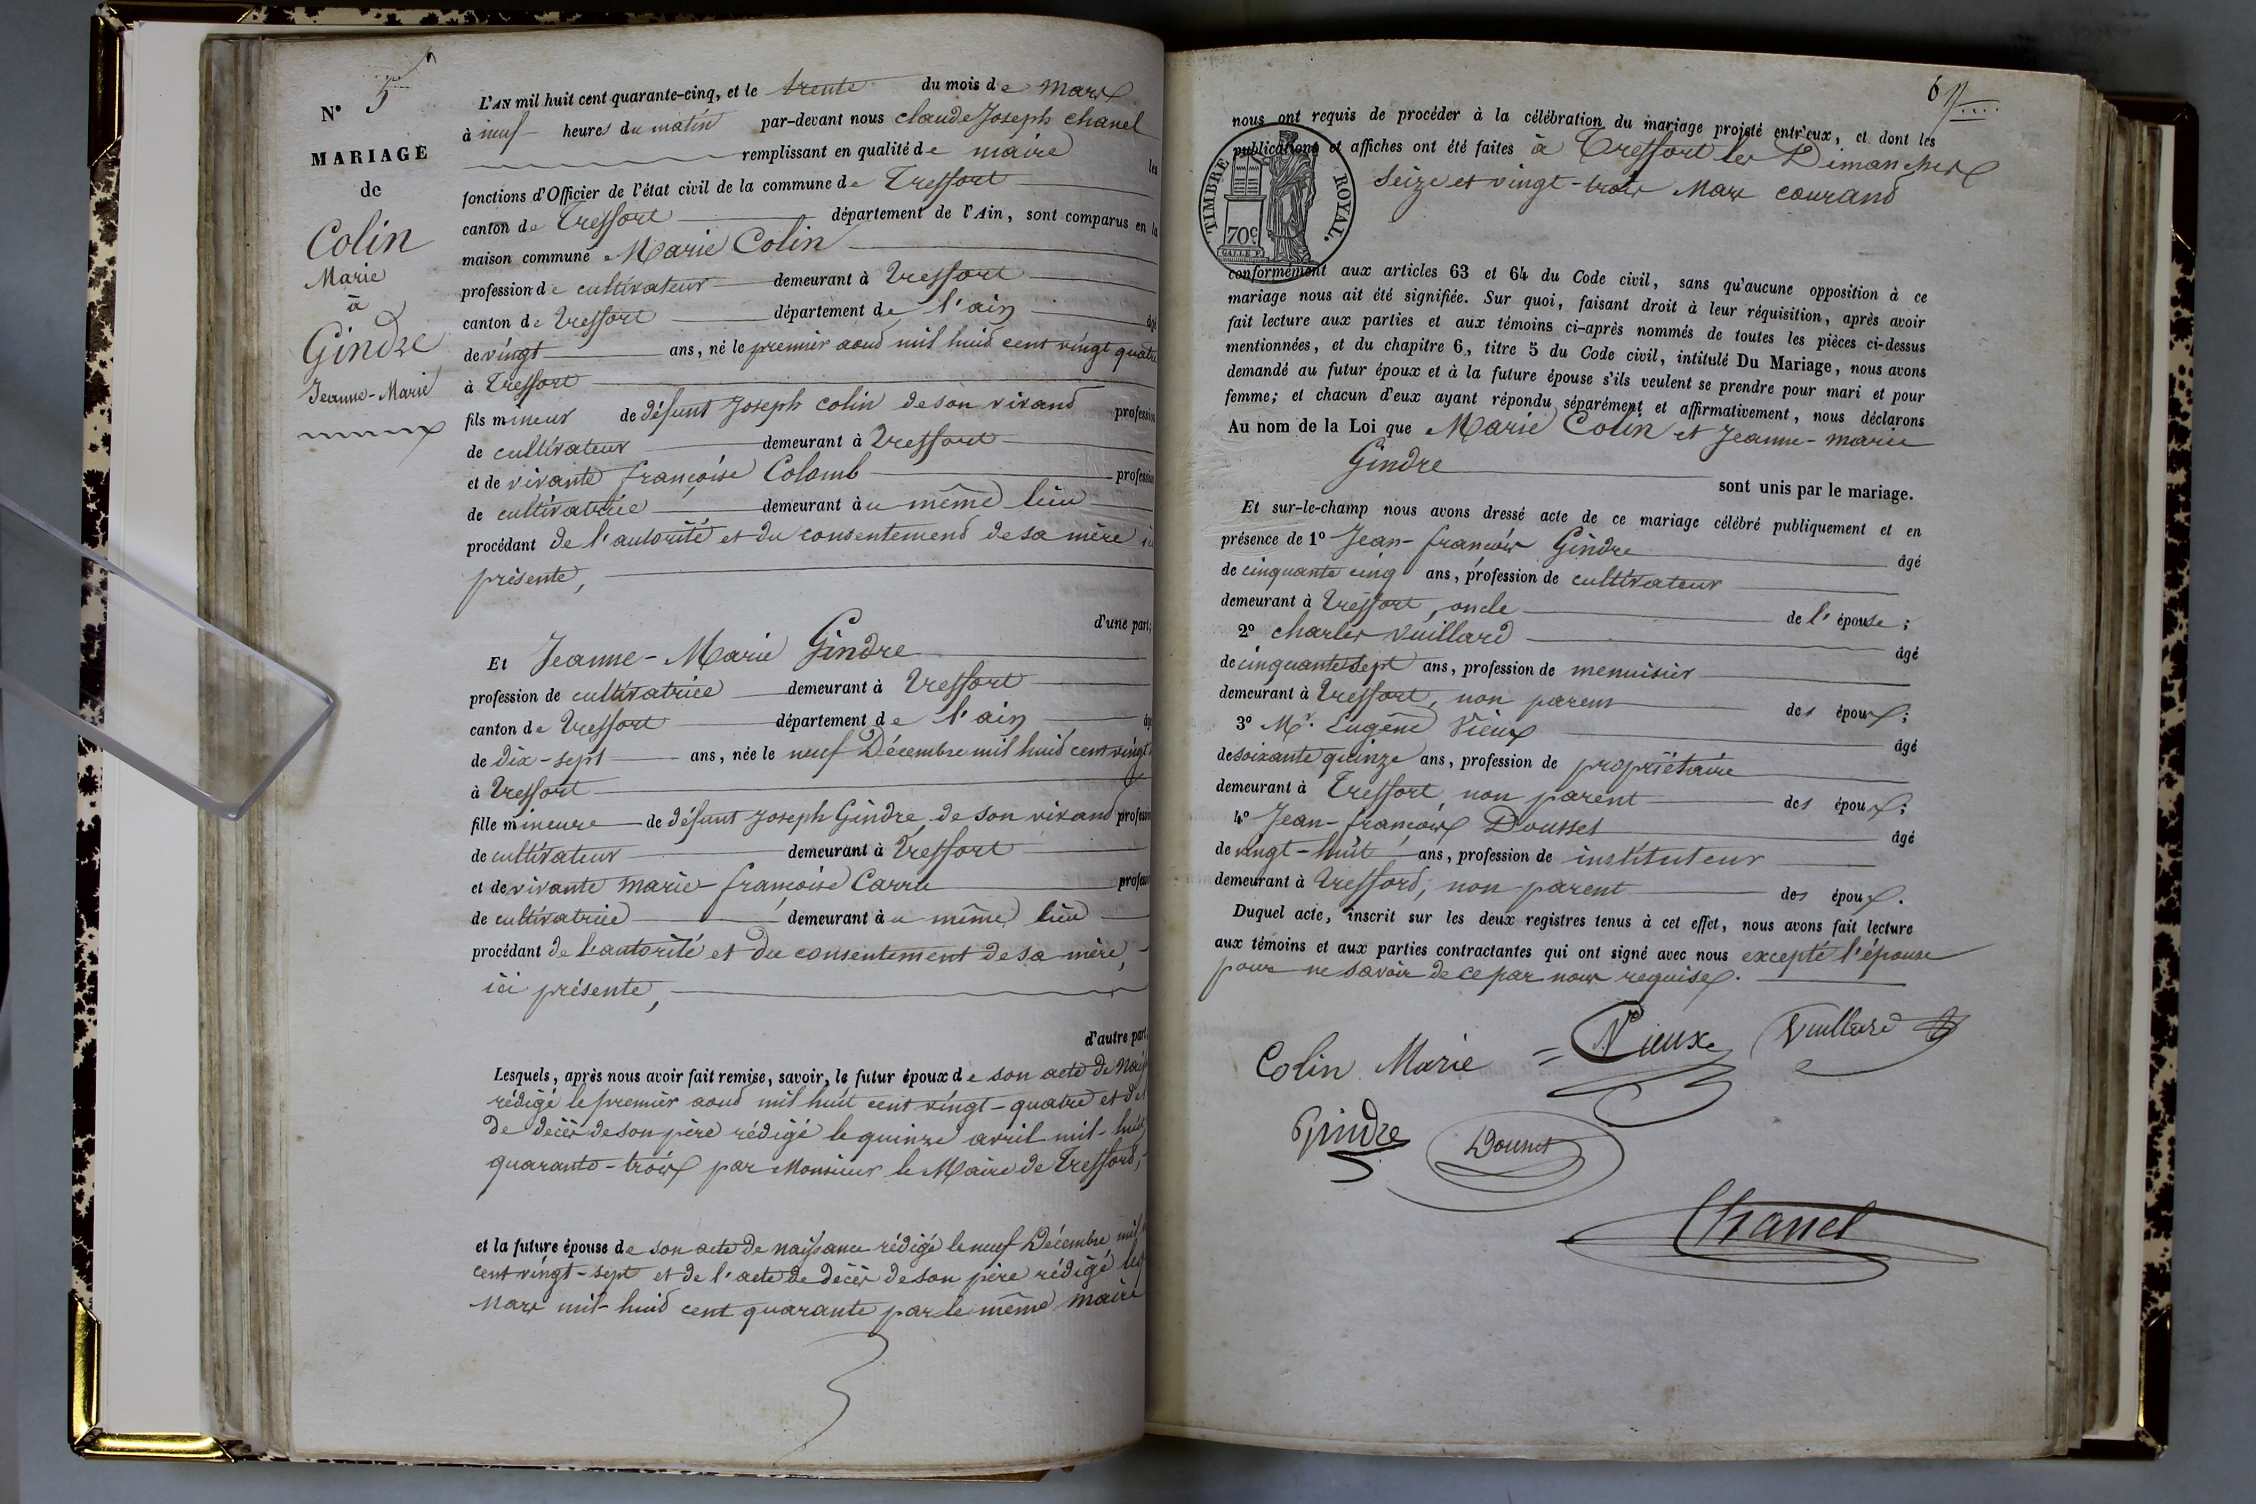 N° 5
MARIAGE
de
Colin
Marie
à
Gindre
Jeanne-Marie
L'AN mil huit cent quarante-cinq, et le trente du mois de mars
à neuf heures du matin par-devant nous claude Joseph chanel
remplissant en qualité de maire les
fonctions d'Officier de l'état civil de la commune de Treffort
canton de Treffort département de l'Ain, sont comparus en la
maison commune Marie Colin
profession de cultivateur demeurant à Treffort
canton de Treffort département de l'ain âgé
de vingt ans, né le premier aoud mil huid cent vingt quatre
à Treffort
fils mineur de défunt Joseph Colin de son vivand profession
de cultivateur demeurant à Treffort
et de vivante françoise Colomb profession
de cultivatrice demeurant au même lieu
procédant de l'autorité et du consentemend de sa mère ici
présente,
d'une part;
Et Jeanne-Marie Gindre
profession de cultivatrice demeurant à Treffort
canton de Treffort département de l'ain âgée
de dix-sept ans, née le neuf Décembre mil huid cent vingt
à Treffort
fille mineure de défunt Joseph Gindre de son vivand profession
de cultivateur demeurant à Treffort
et de vivante marie-françoise Carru profession
de cultivatrice demeurant au même lieu
procédant de l'autorité et du consentement de sa mère,
ici présente,
d'autre part.
Lesquels, après nous avoir fait remise, savoir, le futur époux de son acte de Naiss
rédigé le premier aoud mil huit cent vingt-quatre et de
de décès de son père rédigé le quinze avril mil-huit
quarante-trois par Monsieur le Maire de Tresford,
et la future épouse de son acte de naissance rédigé le neuf Décembre mil
cent vingt-sept et de l'acte de décès de son père rédigé le
Mars mil-huid cent quarante par le même maire
6
nous ont requis de procéder à la célébration du mariage projeté entr'eux, et dont les
publications et affiches ont été faites à Treffort les Dimanches
seize et vingt-trois Mars courand
TIMBRE ROYAL.
70c
conformément aux articles 63 et 64 du Code civil, sans qu'aucune opposition à ce
mariage nous ait été signifiée. Sur quoi, faisant droit à leur réquisition, après avoir
fait lecture aux parties et aux témoins ci-après nommés de toutes les pièces ci-dessus
mentionnées, et du chapitre 6, titre 5 du Code civil, intitulé Du Mariage, nous avons
demandé au futur époux et à la future épouse s'ils veulent se prendre pour mari et pour
femme; et chacun d'eux ayant répondu séparément et affirmativement, nous déclarons
Au nom de la Loi que Marie Colin et Jeanne-marie
Gindre
sont unis par le mariage.
Et sur-le-champ nous avons dressé acte de ce mariage célébré publiquement et en
présence de 1° Jean-françois Gindre âgé
de cinquante cinq ans, profession de cultivateur
demeurant à Treffort, oncle de l'épouse;
2° charles Vuillard âgé
de cinquante sept ans, profession de menuisier
demeurant à Treffort, non parent des époux;
3° Mr. Eugène Vieux âgé
de soixante quinze ans, profession de propriétaire
demeurant à Treffort, non parent des époux;
4° Jean-françois Dousset âgé
de vingt-huit ans, profession de instituteur
demeurant à Tresford, non parent des époux.
Duquel acte, inscrit sur les deux registres tenus à cet effet, nous avons fait lecture
aux témoins et aux parties contractantes qui ont signé avec nous excepté l'épouse
pour ne savoir de ce par nous requise.
Colin Marie Vieux Vuillard
Gindre Dousset
Chanel